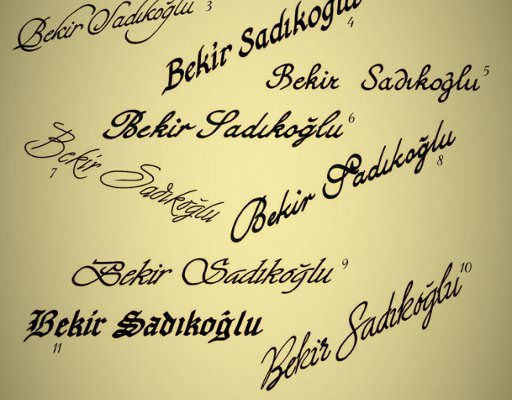 Bekir Sadıkoğlu 3
Bekir Sadıkoğlu 4
Bekir Sadıkoğlu 5
Bekir Sadıkoğlu 6
Bekir Sadıkoğlu 7
Bekir Sadıkoğlu 8
Bekir Sadıkoğlu 9
Bekir Sadıkoğlu 10
Bekir Sadıkoğlu 11